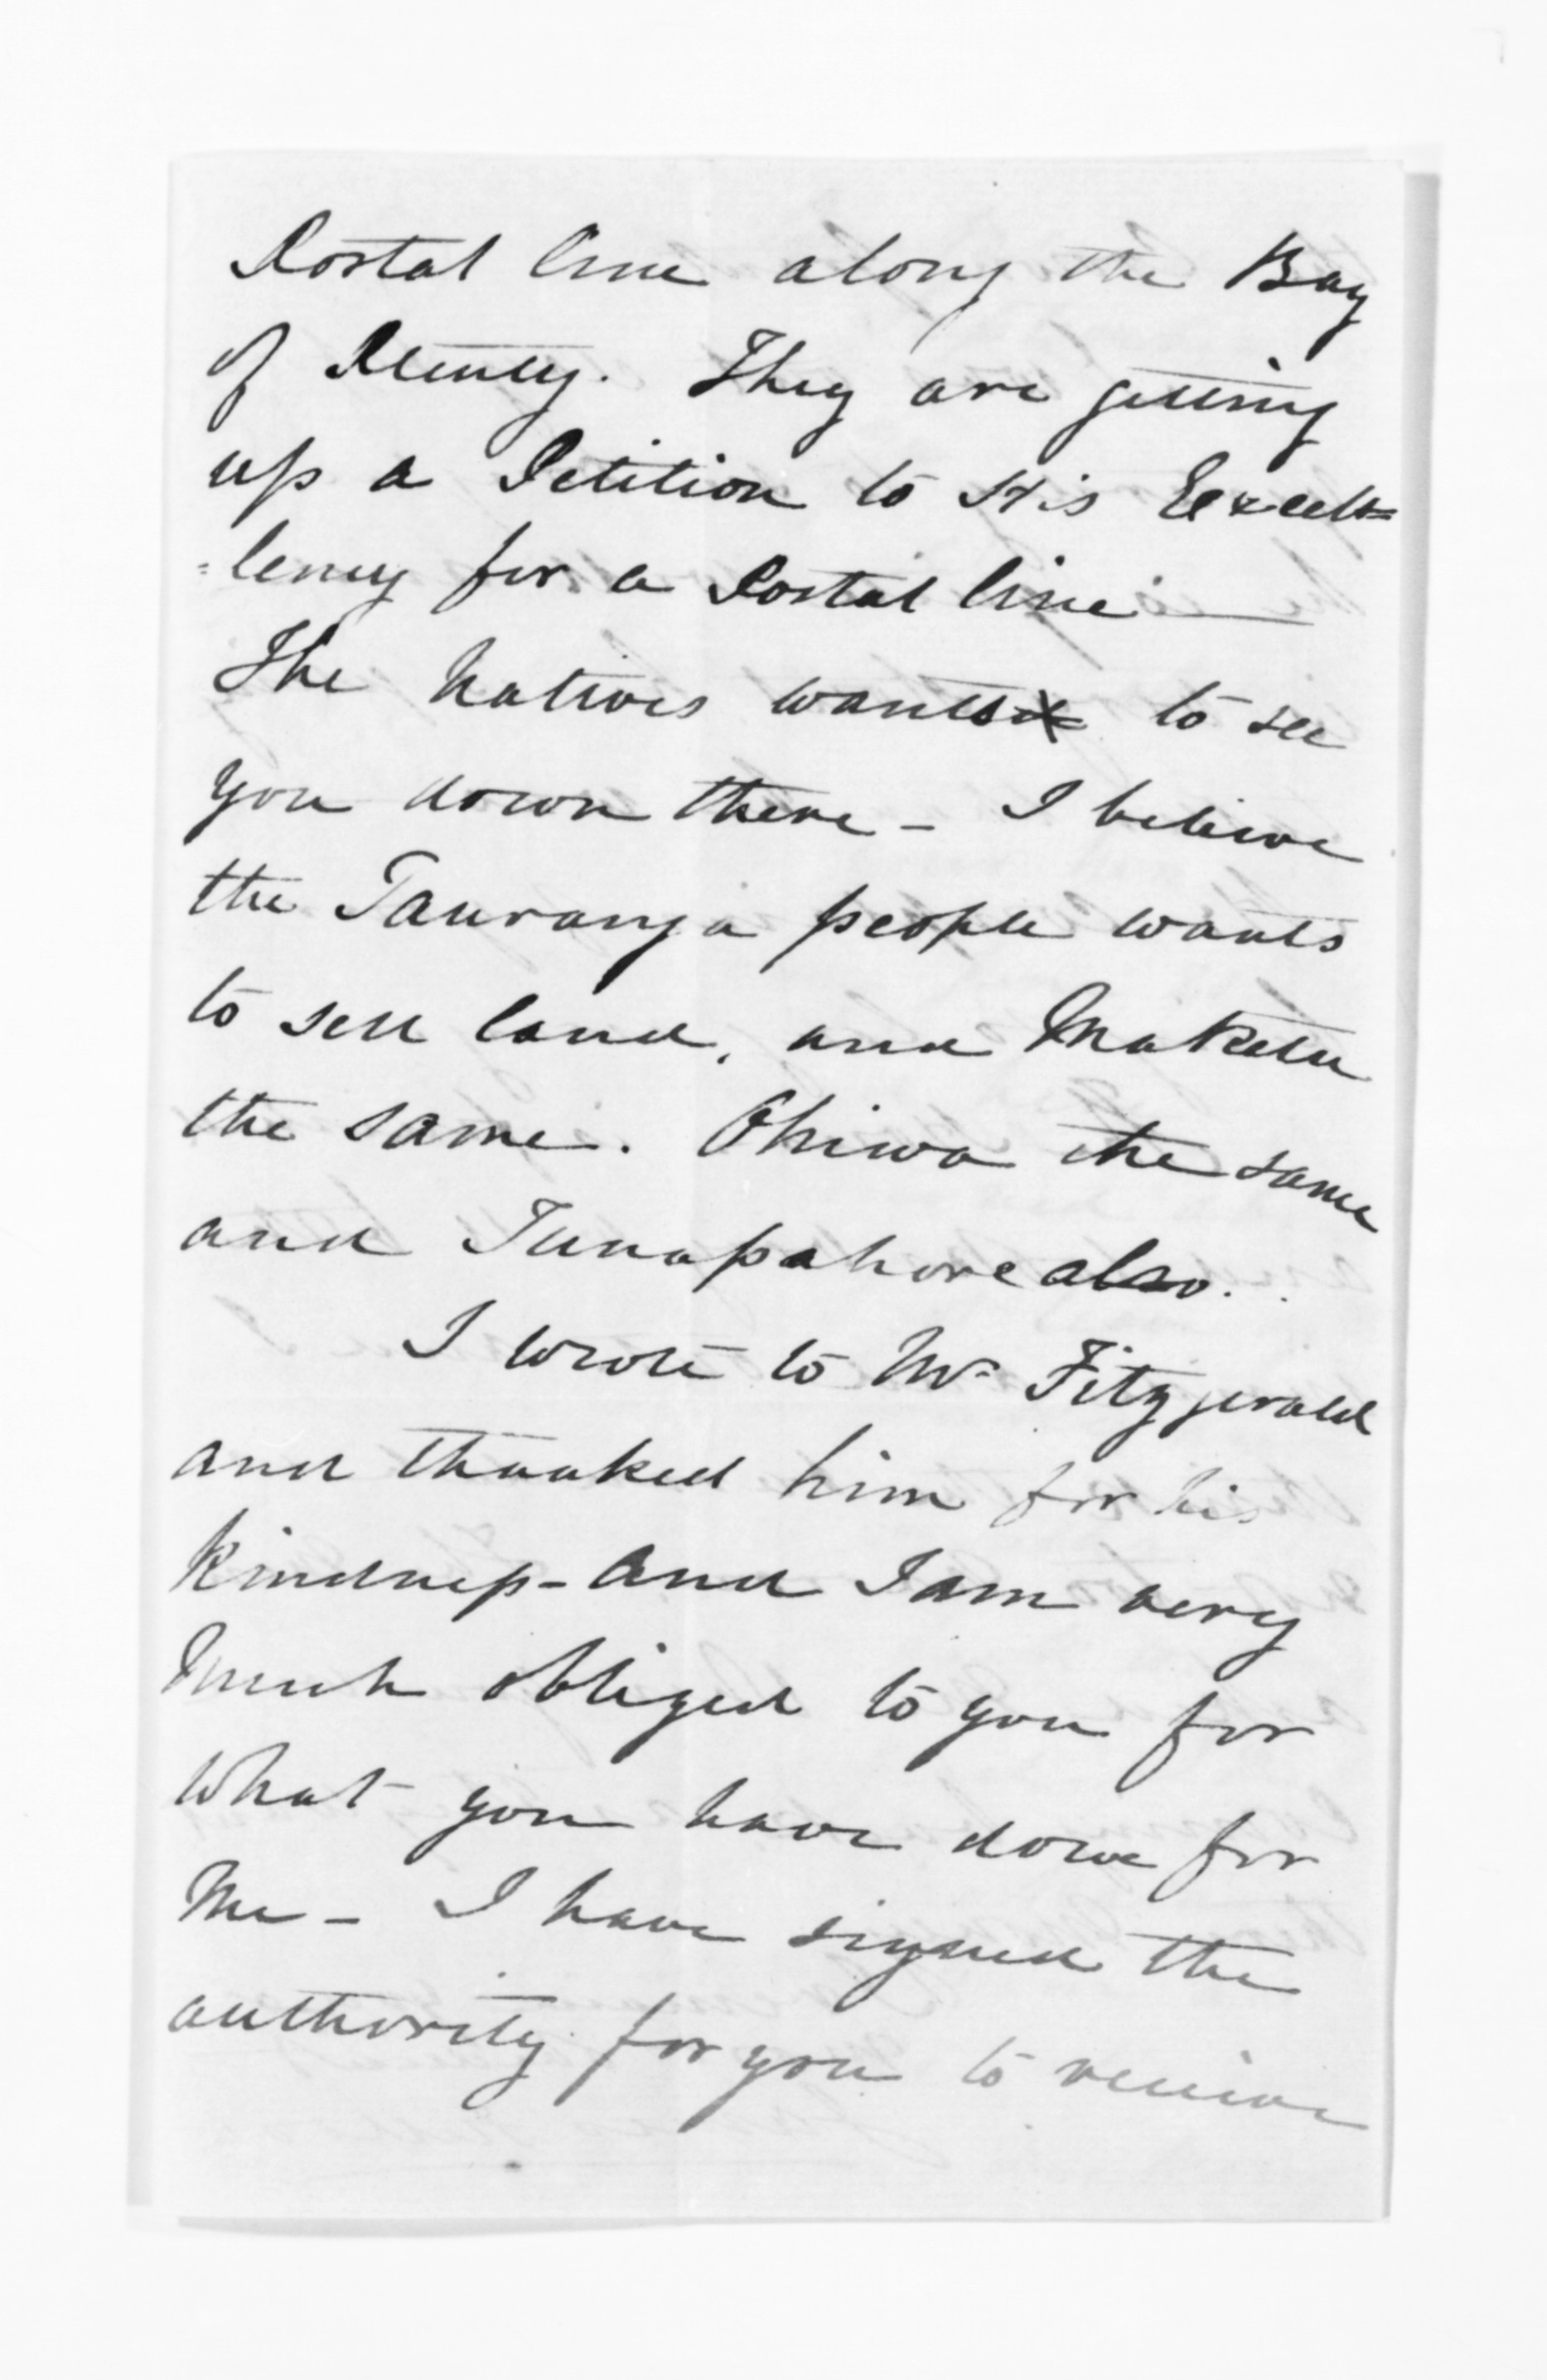 Postal line along the Bay
of Plenty. They are getting
up a Petition to His Excel=
=lency for a Postal line
The Natives wants to see
you down there - I believe
the Tauranga people wants
to sell land, and Maketu
the same. Ohiwa the same
and Tunapahore also.
I wrote to Mr Fitzgerald
and thanked him for his
kindness - and I am very
much obliged to you for
what you have done for
me - I have signed the
authority for you to receive